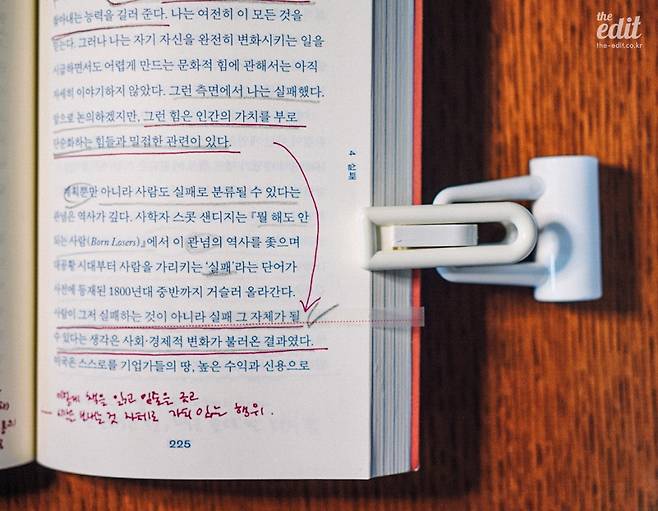 찾아내는 능력을 길러 준다. 나는 여전히 이 모든 것을
믿는다. 그러나 나는 자기 자신을 완전히 변화시키는 일을
시급하면서도 어렵게 만드는 문화적 힘에 관해서는 아직
자세히 이야기하지 않았다. 그런 측면에서 나는 실패했다.
앞으로 논의하겠지만, 그런 힘은 인간의 가치를 부로
단순화하는 힘들과 밀접한 관련이 있다.
계획뿐만 아니라 사람도 실패로 분류될 수 있다는
관념은 역사가 깊다. 사학자 스콧 샌디지는 『뭘 해도 안
되는 사람(Born Losers)』에서 이 관념의 역사를 좇으며
대공황 시대부터 사람을 가리키는 '실패'라는 단어가
사전에 등재된 1800년대 중반까지 거슬러 올라간다.
사람이 그저 실패하는 것이 아니라 실패 그 자체가 될
수 있다는 생각은 사회·경제적 변화가 불러온 결과였다.
미국은 스스로를 기업가들의 땅, 높은 수익과 신용으로
이렇게 책을 읽고 밑줄을 긋고
보내는 것 자체로 가치 있는 행위.
225
4 실패
the
edit
the-edit.co.kr